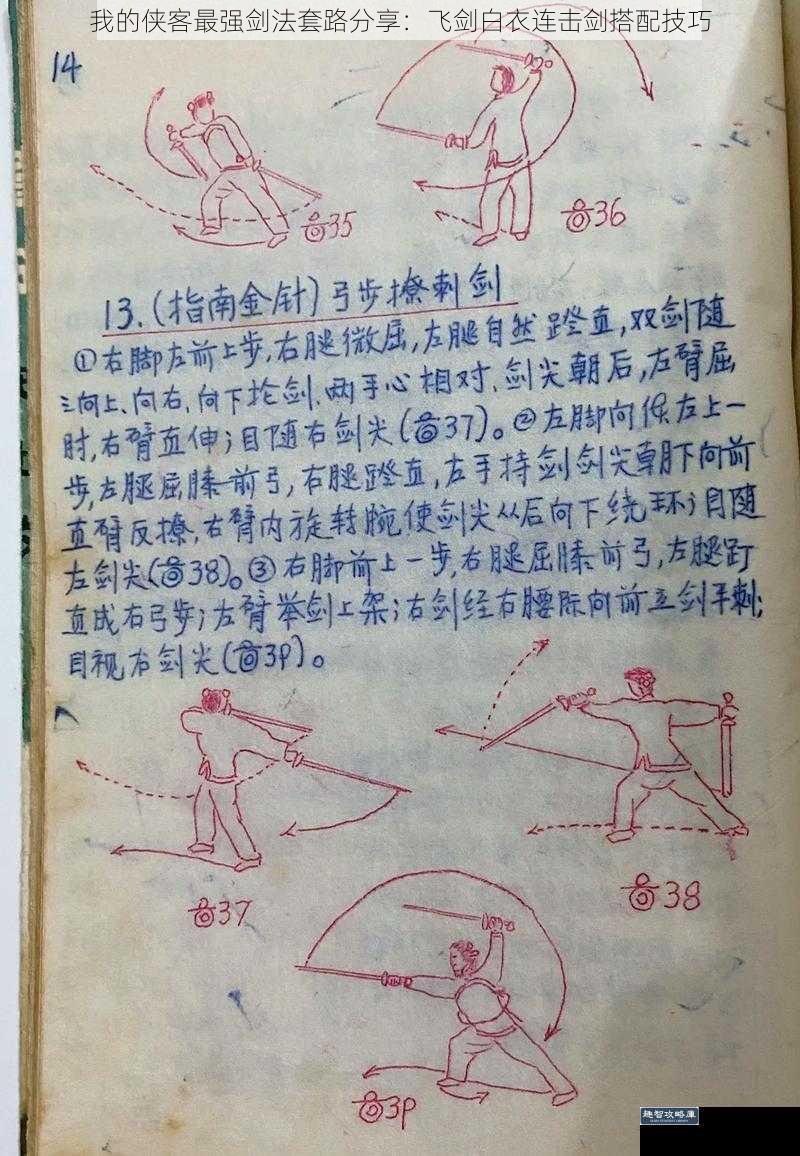 我的侠客最强剑法套路分享：飞剑白衣连击剑搭配技巧
14
图35
图36
13.(指南金针)弓步撩刺剑
①右脚左前上步,右腿微屈,左腿自然蹬直,双剑随
之向上、向右、向下抡剑.两手心相对、剑尖朝后,左臂屈
时,右臂直伸;目随右剑尖(图37)。②左脚向 左上一
步,左腿屈膝前弓,右腿蹬直,左手持剑剑尖朝下向前
直臂反撩,右臂内旋转腕使剑尖从后向下绕环;目随
左剑尖(图38)。③右脚前上一步,右腿屈膝前弓,左腿
直成右弓步;左臂举剑上架;右剑经右腰际向前立剑平刺;
目视右剑尖(图39)。
图37
图38
图39
趣智攻略库